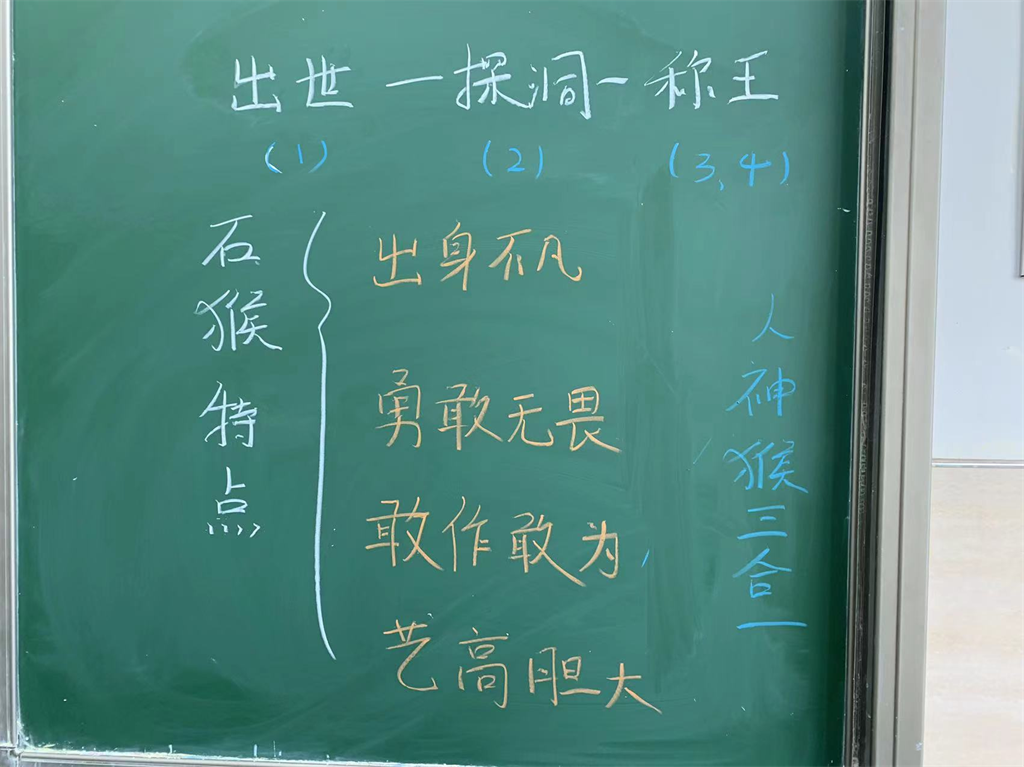 出世—探洞—称王
(1) (2) (3,4)
石猴特点
出身不凡
勇敢无畏
敢作敢为
艺高胆大
人神猴三合一